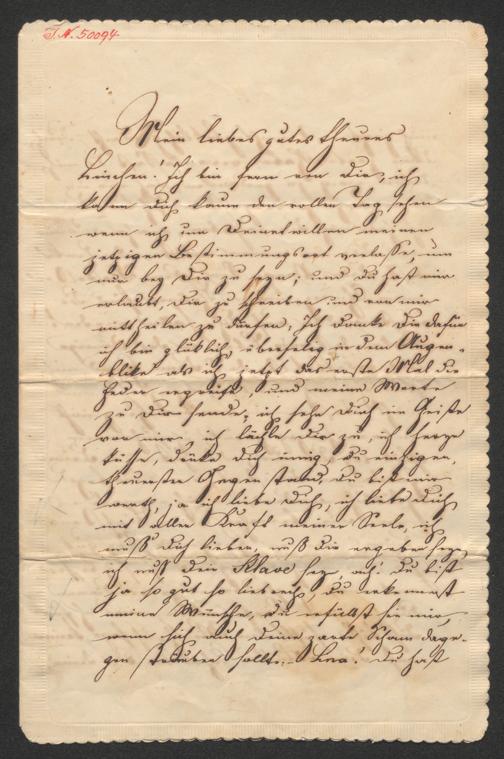 I. N. 50094
Mein liebes gutes theures
Linchen! Ich bin fern von Dir, ich
kann Dich kaum den vollen Tag sehen
wenn ich um Deinetwillen meinen
jetzigen Bestimmungsort verlasse, um
nur bey Dir zu seyn; und Du hast mir
erlaubt, Dir zu schreiben und von mir
mittheilen zu dürfen. Ich danke Dir dafür
ich bin glücklich, überselig in dem Augen-
blike als ich jetzt das erste Mal die
Feder ergreife, und meine Worte
zu Dir sende; ich sehe Dich im Geiste
vor mir, ich lächle Dir zu, ich herze
küsse, drüke Dich innig, Du einziger,
theuerster Gegenstand, Du bist mir
werth, ja ich liebe Dich, ich liebe Dich
mit aller Kraft meiner Seele, ich
muß Dich lieben, muß Dir ergeben seyn
ich muß Dein Sklave sey, ach! Du bist
ja so gut so liebreich, Du erkennst
meine Wünsche, Du erfüllst sie mir,
wenn sich auch Deine zarte Scham dage-
gen sträuben sollte. Lina! Du hast